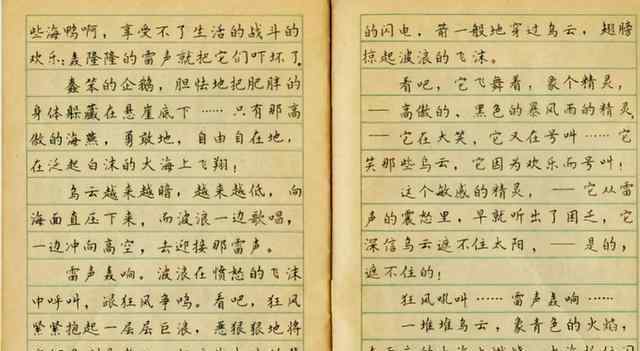 些海鸭啊，享受不了生活的战斗的
欢乐：轰隆隆的雷声就把它们吓坏了。
蠢笨的企鹅，胆怯地把肥胖的
身体躲藏在悬崖底下……只有那高
傲的海燕，勇敢地，自由自在地，
在泛起白沫的大海上飞翔！
乌云越来越暗，越来越低，向
海面直压下来，而波浪一边歌唱，
一边冲向高空，去迎接那雷声。
雷声轰响。波浪在愤怒的飞沫
中呼叫，跟狂风争鸣。看吧，狂风
紧紧抱起一层层巨浪，恶狠狠地将
的闪电，箭一般地穿过乌云，翅膀
掠起波浪的飞沫。
看吧，它飞舞着，象个精灵，
——高傲的、黑色的暴风雨的精灵，
——它在大笑，它又在号叫……它
笑那些乌云，它因为欢乐而号叫！
这个敏感的精灵，——它从雷
声的震怒里，早就听出了困乏，它
深信乌云遮不住太阳，——是的，
遮不住的！
狂风吼叫……雷声轰响……
一堆堆乌云，象青色的火焰，